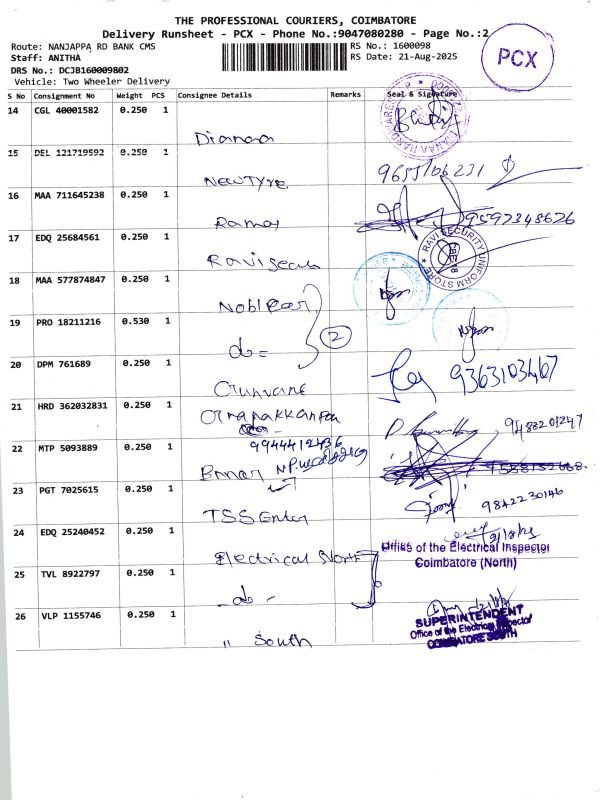 THE PROFESSIONAL COURIERS, COIMBATORE
Delivery Runsheet - PCX - Phone No.:9047080280 - Page No.:2
Route: NANJAPPA RD BANK CMS RS No.: 1600098
Staff: ANITHA RS Date: 21-Aug-2025
DRS No.: DCJB160009802
Vehicle: Two Wheeler Delivery
PCX
S No Consignment No Weight PCS Consignee Details Remarks Seal & Signature
14 CGL 40001582 0.250 1
15 DEL 121719592 0.250 1
Newtyre 9655106231
16 MAA 711645238 0.250 1
9597348626
17 EDQ 25684561 0.250 1
RAVI SECURITY UNIFORM STORE
18 MAA 577874847 0.250 1
19 PRO 18211216 0.530 1
2
20 DPM 761689 0.250 1
9363103467
21 HRD 362032831 0.250 1
9488201247
22 MTP 5093889 0.250 1
9944412436
23 PGT 7025615 0.250 1
9842230146
24 EDQ 25240452 0.250 1
Electrical North
Office of the Electrical Inspector
Coimbatore (North)
25 TVL 8922797 0.250 1
-do-
26 VLP 1155746 0.250 1
SUPERINTENDENT
Office of the Electrical Inspector
COIMBATORE SOUTH
" South